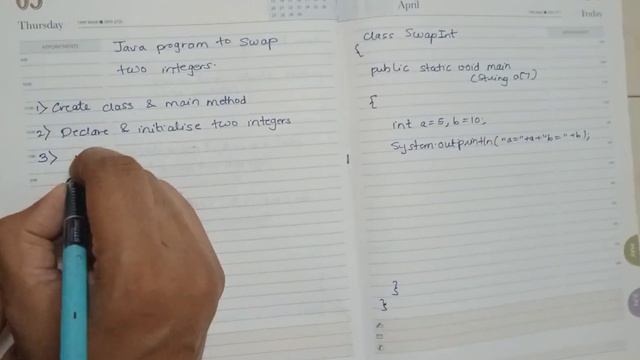 Thursday
APPOINTMENTS
Java program to swap
two integers.
1) Create class & main method
2) Declare & initialise two integers
3)
April
Friday
class SwapInt
{
public static void main
(String a[])
{
int a=5, b=10,
System.out.println("a="+a+"b="+b);
}
}